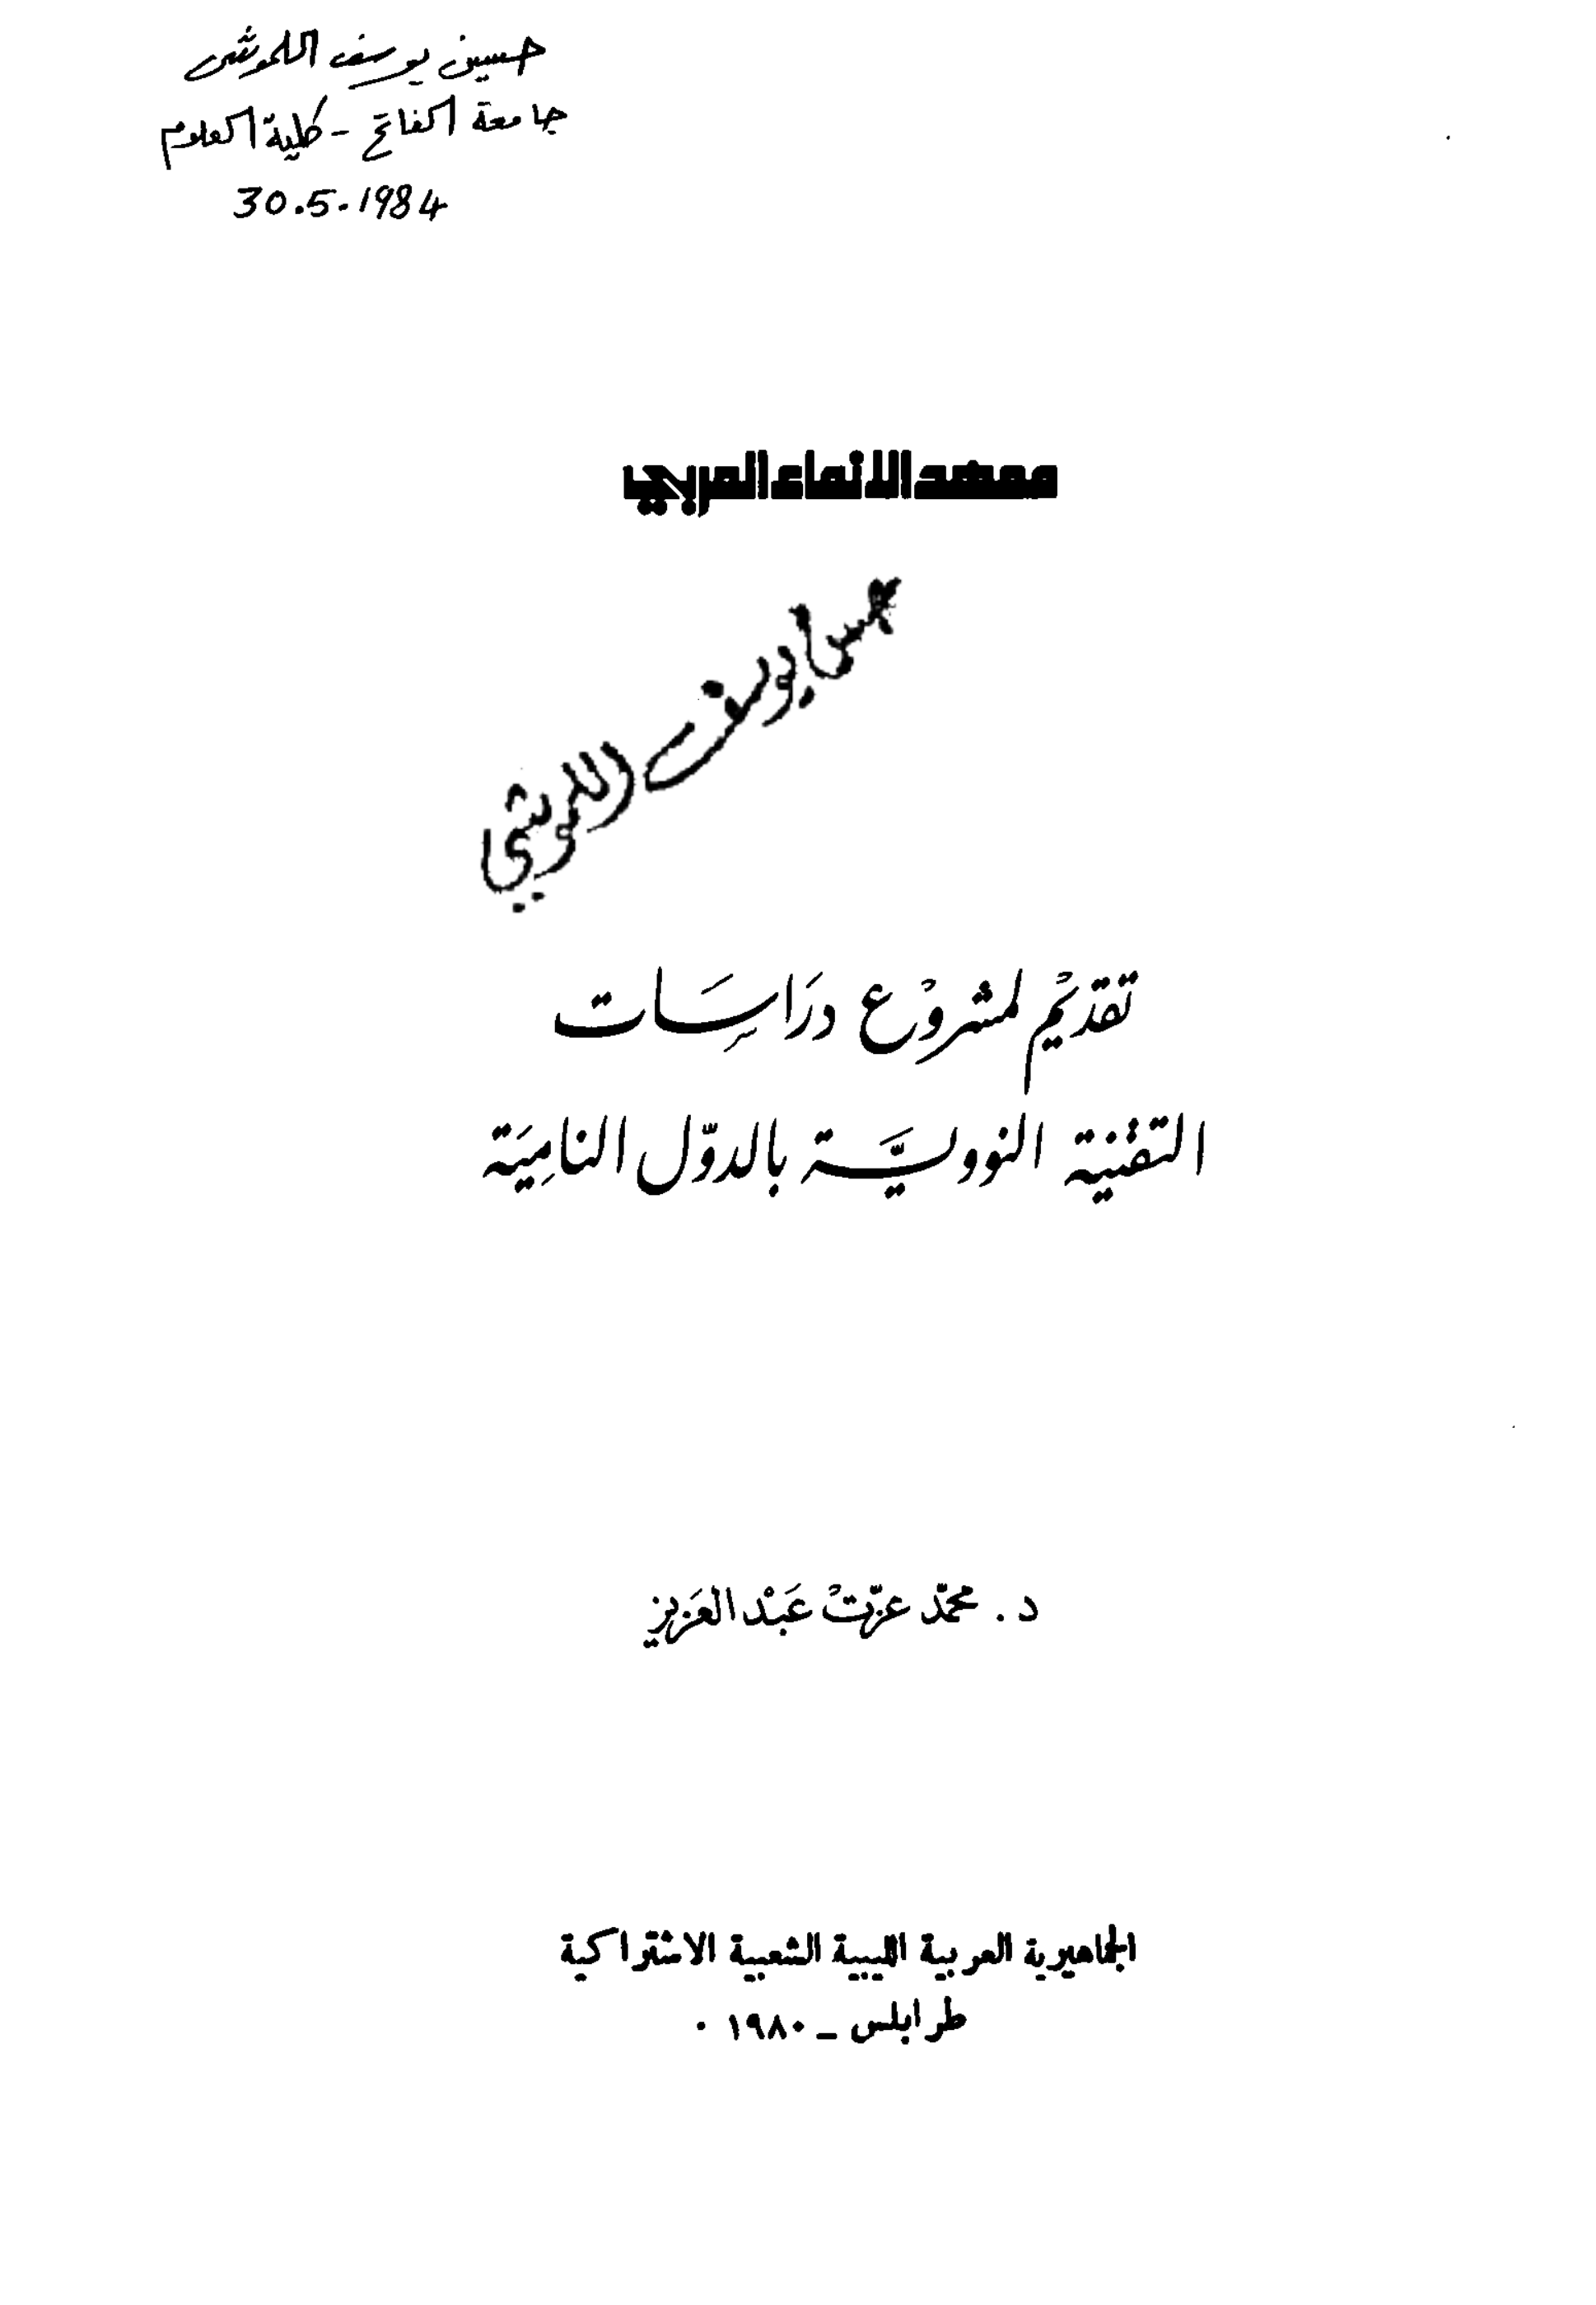 حسين يوسف اللموشي
جامعة الفاتح - كلية العلوم
30.5.1984
معهد الانماء العربي
يوسف اللموشي
تقديم لمشروع دراسات
التقنية النووية بالدول النامية
د. محمد عزت عبد العزيز
الجماهيرية العربية الليبية الشعبية الاشتراكية
طرابلس - ١٩٨٠ .